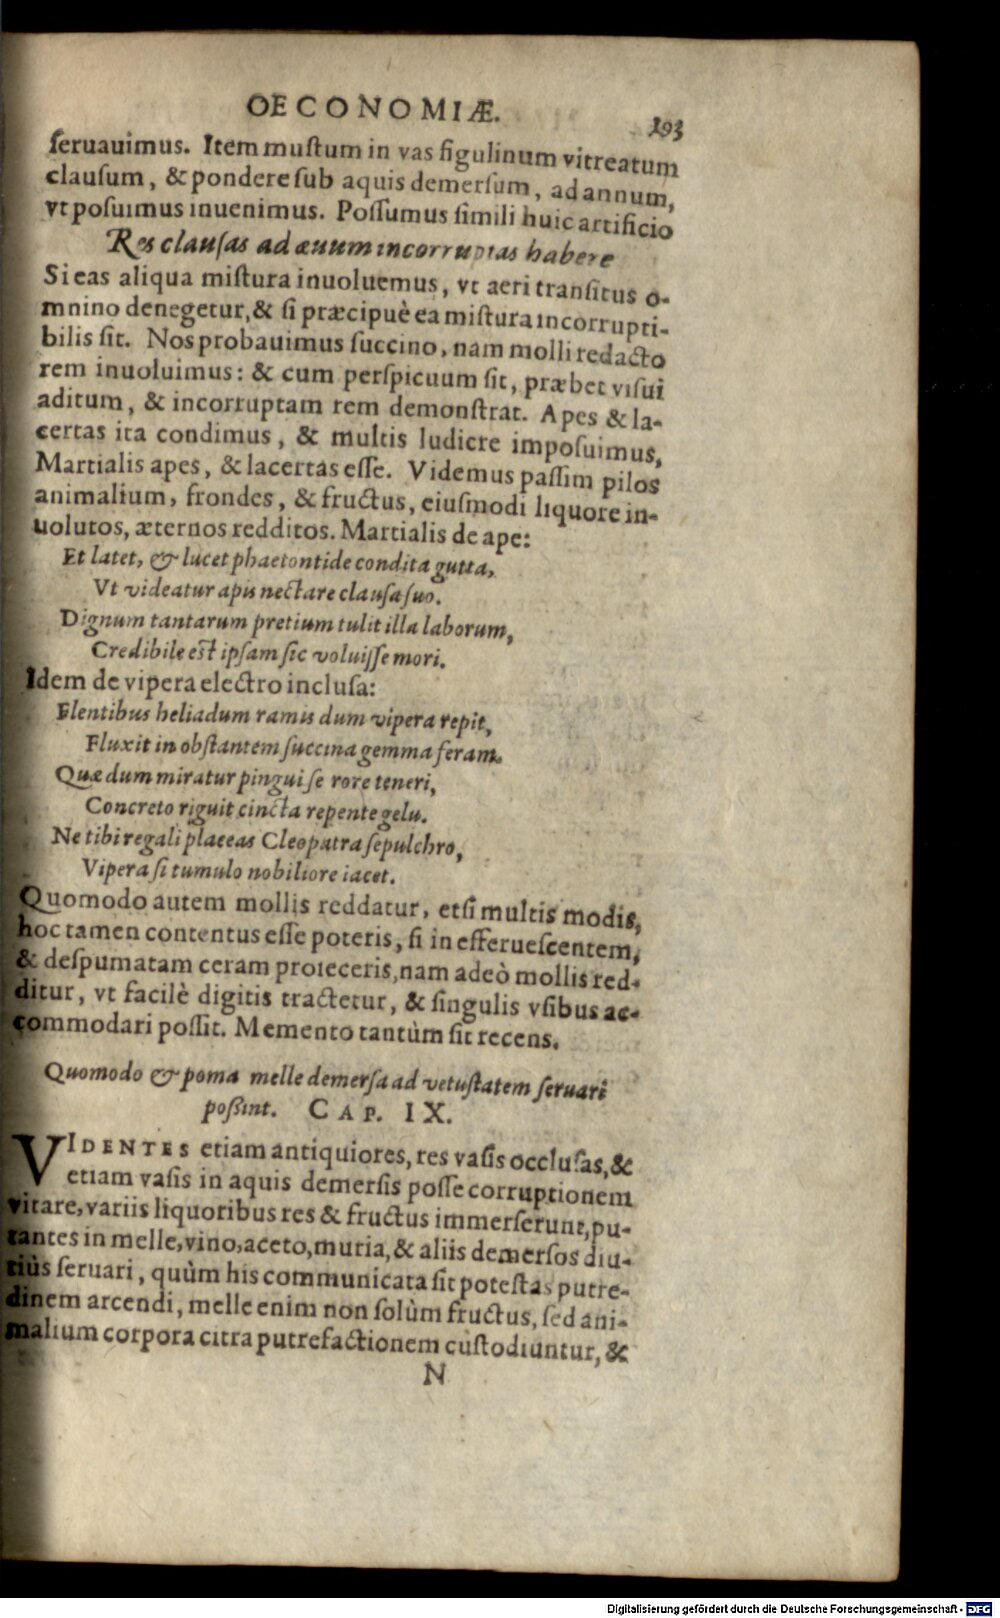 OECONOMIÆ.
193
ſeruauimus. Item muſtum in vas figulinum vitreatum
clauſum, & pondere ſub aquis demerſum, ad annum,
vt poſuimus inuenimus. Poſſumus ſimili huic artificio
Res clauſas ad æuum incorruptas habere
Si eas aliqua miſtura inuoluemus, vt aeri tranſitus o-
mnino denegetur, & ſi præcipuè ea miſtura incorrupti-
bilis ſit. Nos probauimus ſuccino, nam molli redacto
rem inuoluimus: & cum perſpicuum ſit, præbet viſui
aditum, & incorruptam rem demonſtrat. Apes & la-
certas ita condimus, & multis ludicre impoſuimus,
Martialis apes, & lacertas eſſe. Videmus paſſim pilos
animalium, frondes, & fructus, eiuſmodi liquore in-
uolutos, æternos redditos. Martialis de ape:
Et latet, & lucet phaetontide condita gutta,
Vt videatur apis nectare clauſa ſuo.
Dignum tantarum pretium tulit illa laborum,
Credibile eſt ipſam ſic voluiſſe mori.
Idem de vipera electro incluſa:
Flentibus heliadum ramis dum vipera repit,
Fluxit in obſtantem ſuccina gemma feram.
Quæ dum miratur pingui ſe rore teneri,
Concreto riguit cincta repente gelu.
Ne tibi regali placeas Cleopatra ſepulchro,
Vipera ſi tumulo nobiliore iacet.
Quomodo autem mollis reddatur, etſi multis modis,
hoc tamen contentus eſſe poteris, ſi in efferueſcentem,
& deſpumatam ceram proieceris, nam adeò mollis red-
ditur, vt facilè digitis tractetur, & ſingulis vſibus ac-
commodari poſſit. Memento tantùm ſit recens.
Quomodo & poma melle demerſa ad vetuſtatem ſeruari
poßint. CAP. IX.
VIDENTES etiam antiquiores, res vaſis occluſas, &
etiam vaſis in aquis demerſis poſſe corruptionem
vitare, variis liquoribus res & fructus immerſerunt, pu-
tantes in melle, vino, aceto, muria, & aliis demerſos diu-
tiùs ſeruari, quùm his communicata ſit poteſtas putre-
dinem arcendi, melle enim non ſolùm fructus, ſed ani-
malium corpora citra putrefactionem cuſtodiuntur, &
N
Digitalisierung gefördert durch die Deutsche Forschungsgemeinschaft - DFG